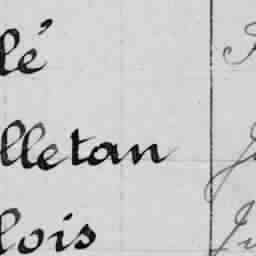 lé
lletan
lois